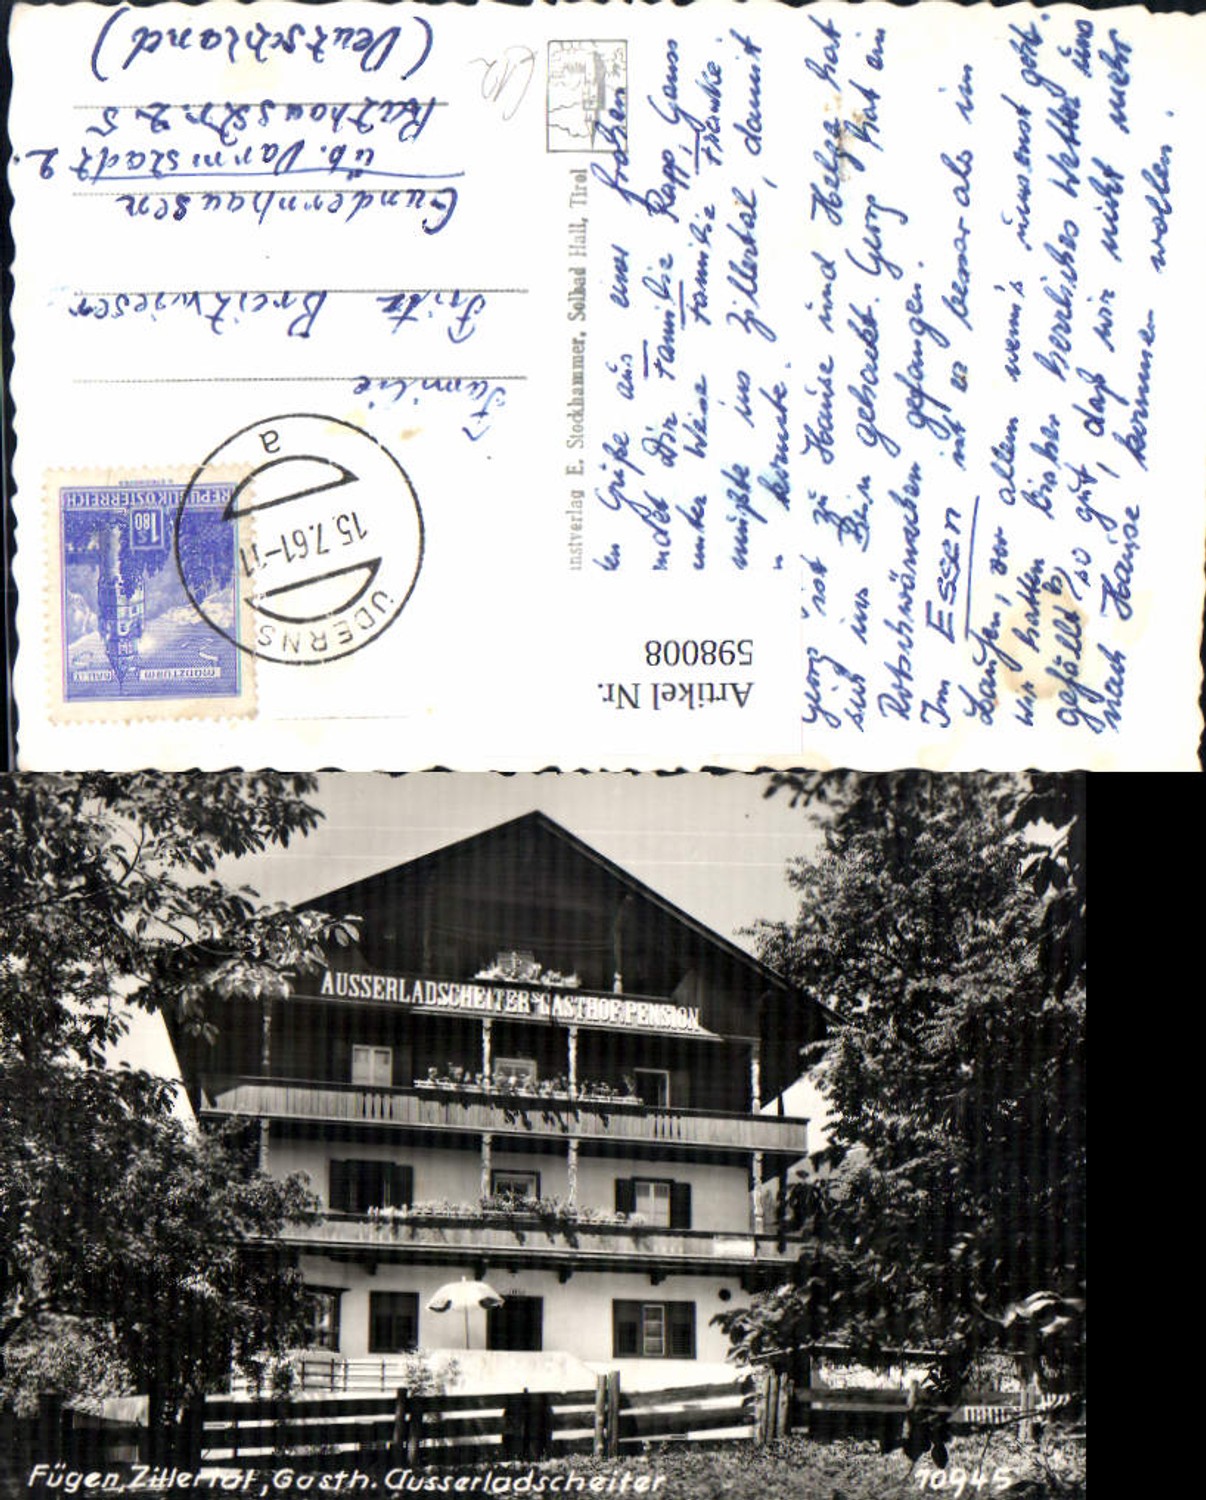 Familie
Fritz Breitwieser
Gundernhausen
üb. Darmstadt 2.
Rathausstr. 25
(Deutschland)
REPUBLIK ÖSTERREICH
1.80
MÜNZTURM HALL I. T.
UDERNS
15.7.61-11
a
Artikel Nr.
598008
unstverlag E. Stockhammer, Solbad Hall, Tirol
Grüße aus einer frohen
Dir Familie Rapp, Gans
unter Weise Familie Franke.
müßte ins Zillertal, damit
könnte.
Georg ist zu Hause und Helga hat
sich ins Bein gehackt. Georg hat ein
Rotschwänzchen gefangen.
Im Essen ist er besser als im
Laufen, vor allem wenn's umsonst geht.
Wir hatten bisher herrliches Wetter uns
gefällt es so gut, daß wir nicht mehr
nach Hause kommen wollen.
AUSSERLADSCHEITER'S GASTHOF, PENSION
Fügen, Zillertal, Gasth. Ausserladscheiter
10945